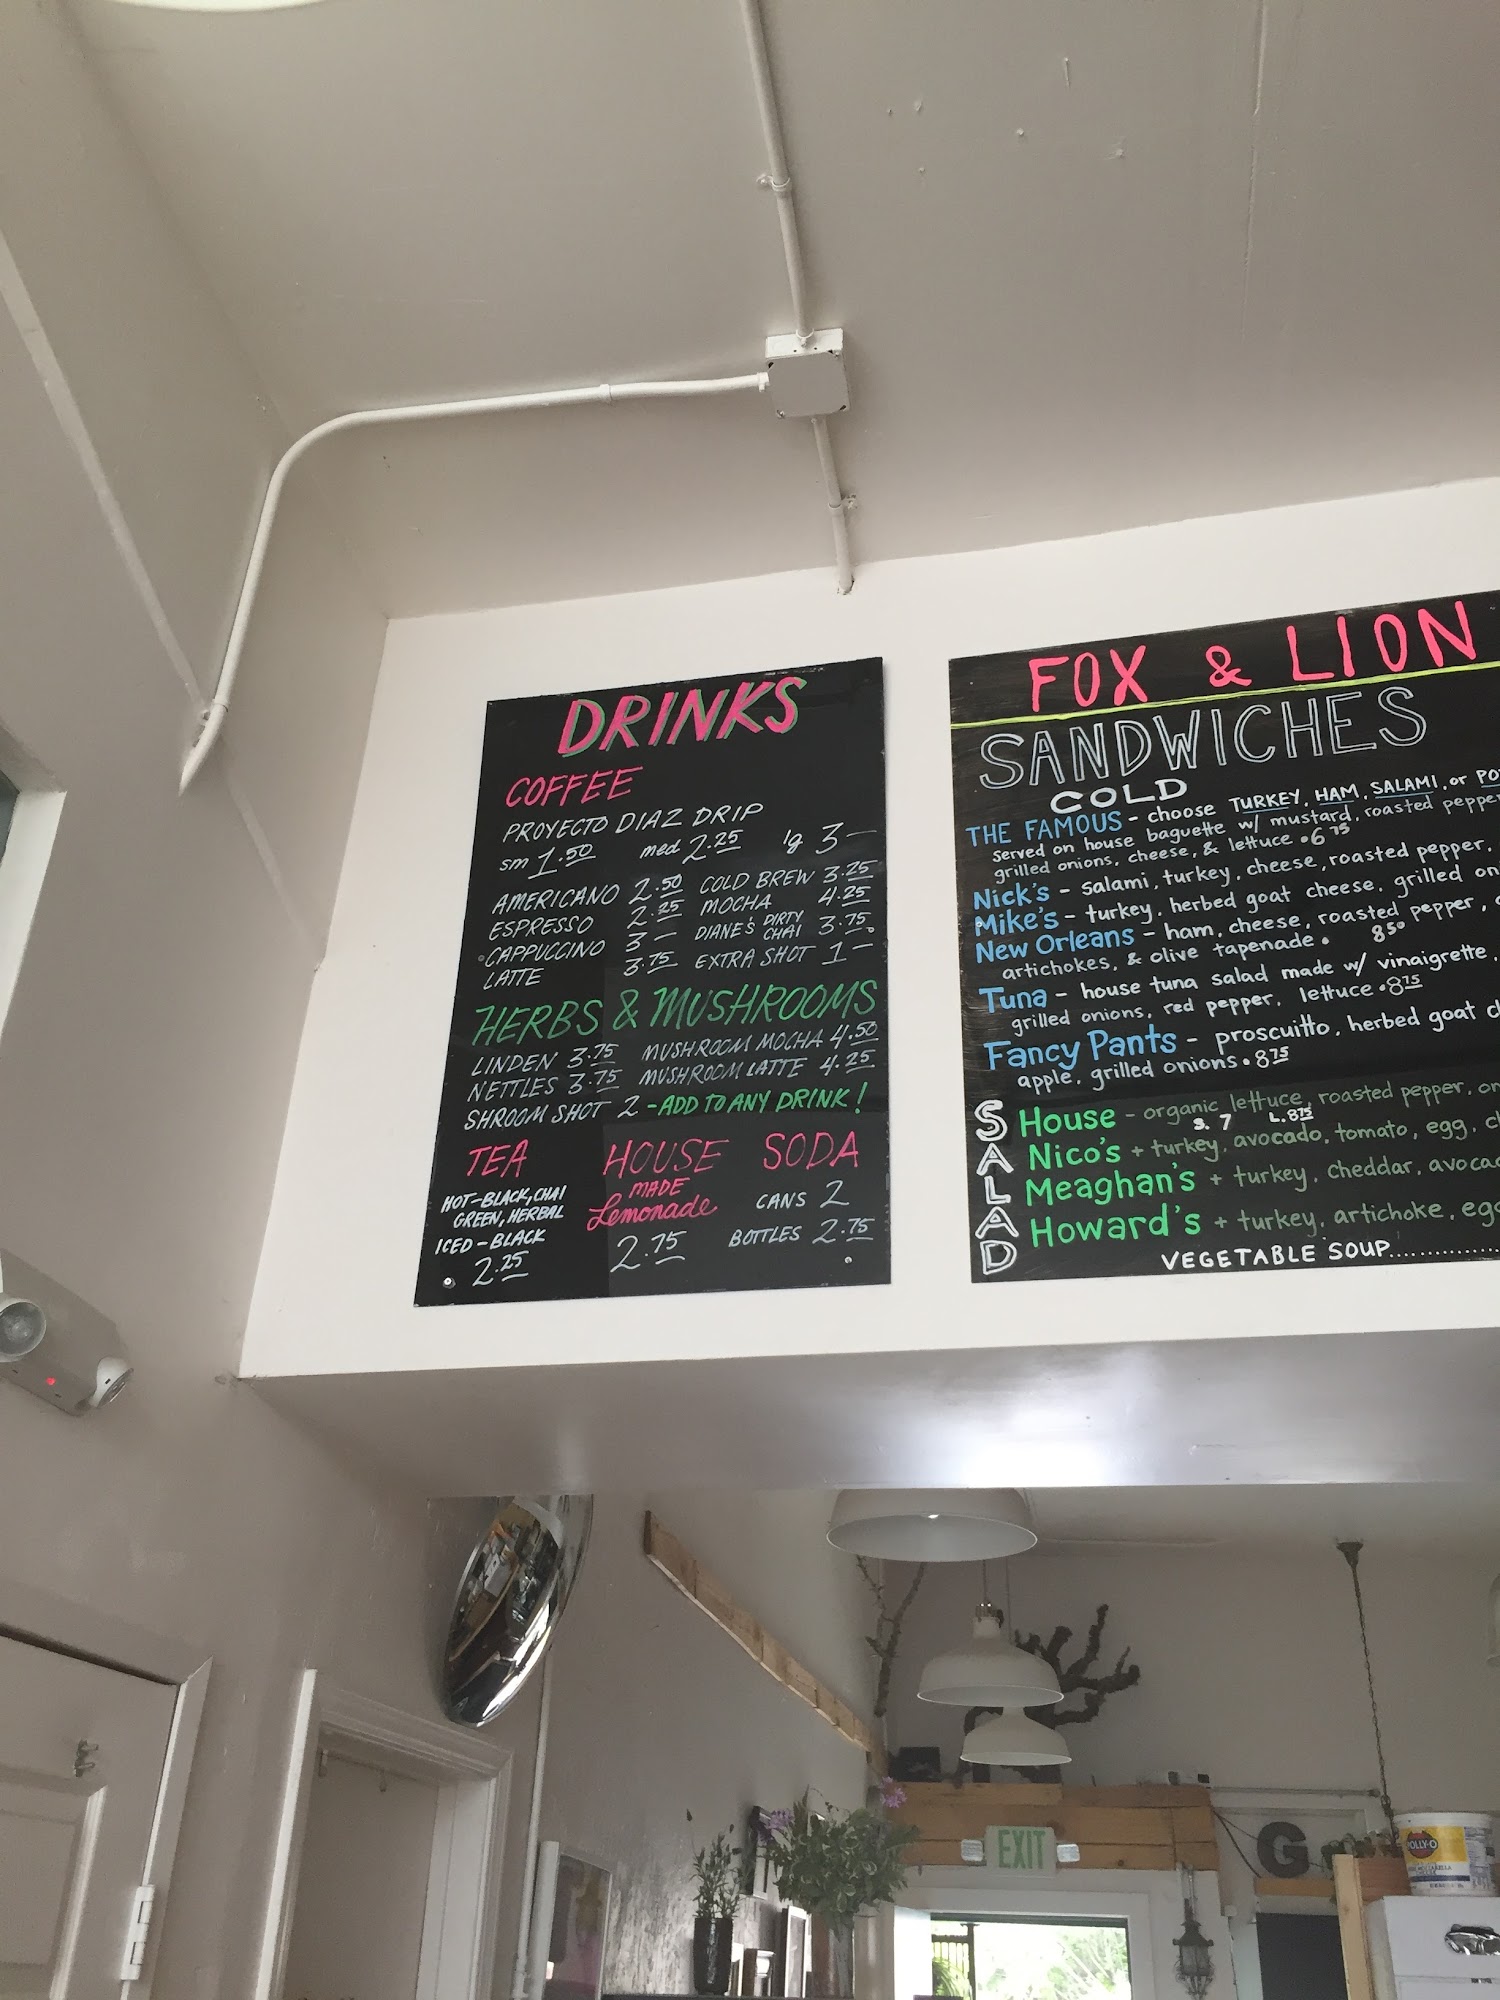 DRINKS
COFFEE
PROYECTO DIAZ DRIP
sm 1.50 med 2.25 lg 3—
AMERICANO 2.50 COLD BREW 3.25
ESPRESSO 2.25 MOCHA 4.25
CAPPUCCINO 3— DIANE'S DIRTY CHAI 3.75
LATTE 3.75 EXTRA SHOT 1—
HERBS & MUSHROOMS
LINDEN 3.75 MUSHROOM MOCHA 4.50
NETTLES 3.75 MUSHROOM LATTE 4.25
SHROOM SHOT 2 - ADD TO ANY DRINK!
TEA
HOT-BLACK, CHAI
GREEN, HERBAL
ICED-BLACK
2.25
HOUSE
MADE
Lemonade
2.75
SODA
CANS 2
BOTTLES 2.75
FOX & LION
SANDWICHES
COLD
THE FAMOUS - choose TURKEY, HAM, SALAMI, or
served on house baguette w/ mustard, roasted pepper
grilled onions, cheese, & lettuce • 6 75
Nick's - salami, turkey, cheese, roasted pepper,
Mike's - turkey, herbed goat cheese, grilled
New Orleans - ham, cheese, roasted pepper,
artichokes, & olive tapenade • 8 50
Tuna - house tuna salad made w/ vinaigrette,
grilled onions, red pepper, lettuce • 8 75
Fancy Pants - proscuitto, herbed goat
apple, grilled onions • 8 75
SALAD
House - organic lettuce, roasted pepper,
S. 7 L. 8 75
Nico's + turkey, avocado, tomato, egg,
Meaghan's + turkey, cheddar,
Howard's + turkey, artichoke,
VEGETABLE SOUP..............
EXIT
G